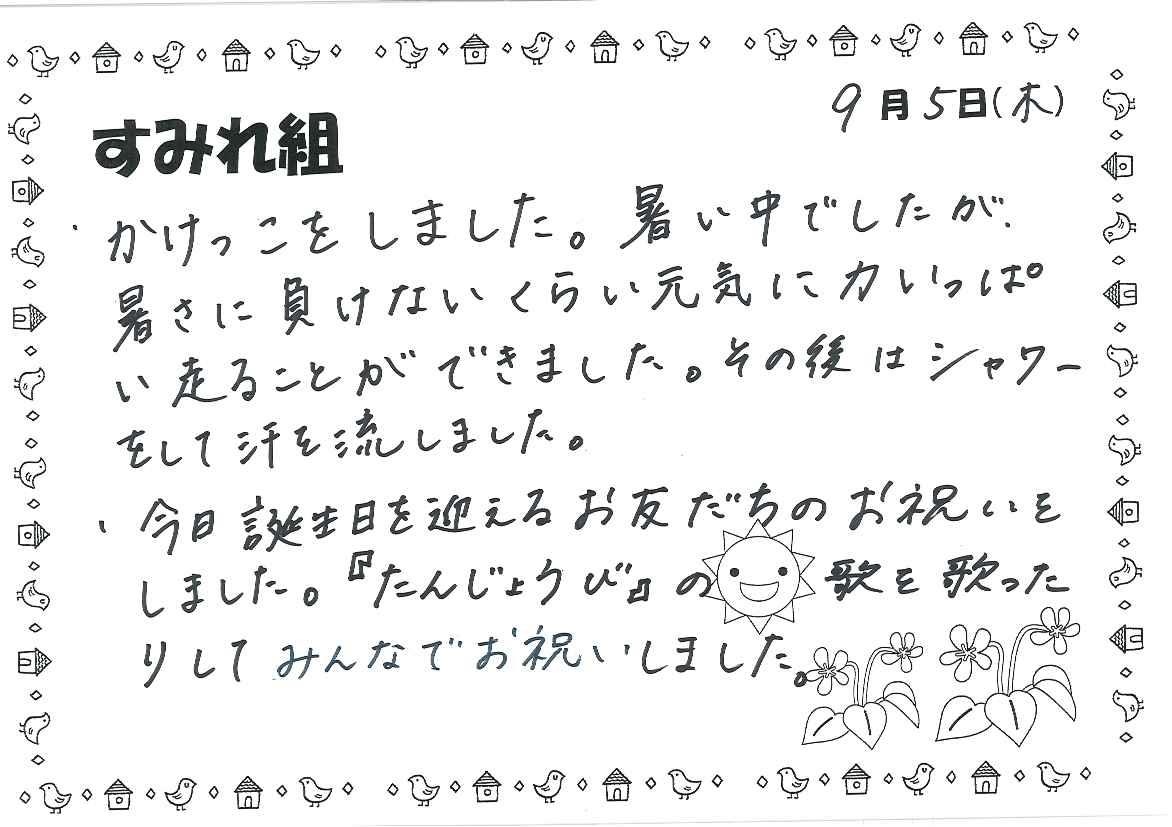 9月5日(木)
すみれ組
・かけっこをしました。暑い中でしたが、
暑さに負けないくらい元気に力いっぱ
い走ることができました。その後はシャワー
をして汗を流しました。
・今日誕生日を迎えるお友だちのお祝いを
しました。『たんじょうび』の歌を歌った
りしてみんなでお祝いしました。